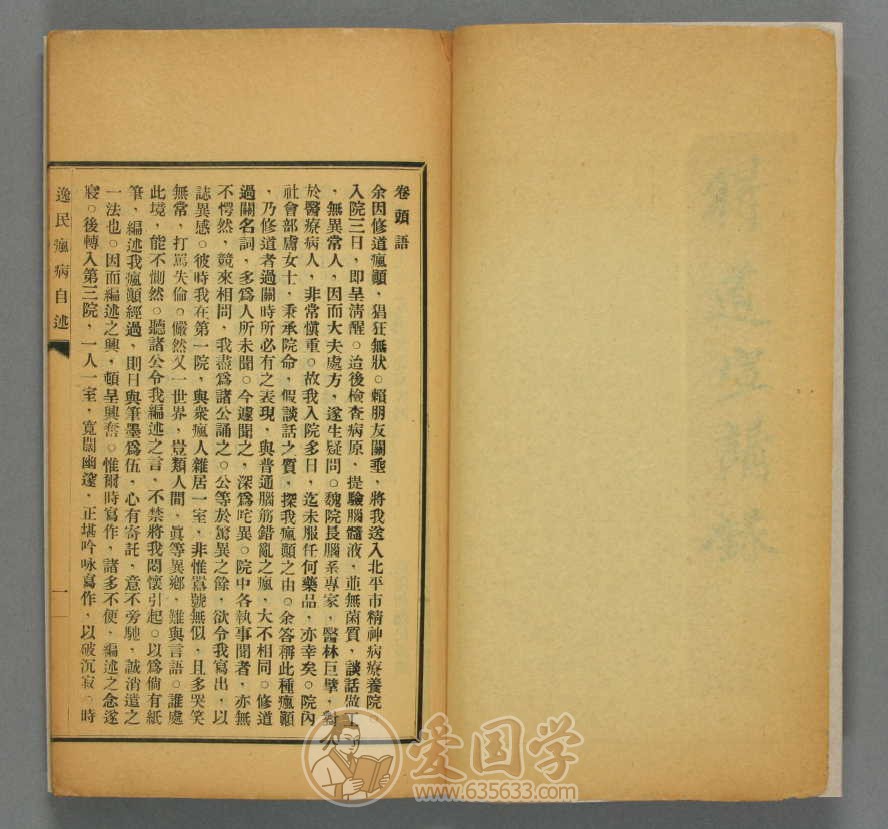 卷頭語
余因修道瘋顚，猖狂無狀。賴朋友關垂，將我送入北平市精神病療養院
入院三日，即呈清醒。迨後檢查病原，提驗腦髓液，並無菌質，談話做工
，無異常人，因而大夫處方，遂生疑問。魏院長腦系專家，醫林巨擘，對
於醫療病人，非常愼重。故我入院多日，迄未服任何藥品，亦幸矣。院內
社會部膚女士，秉承院命，假談話之質，探我瘋顚之由。余答稱此種瘋顚
，乃修道者過關時所必有之表現，與普通腦筋錯亂之瘋，大不相同。修道
過關名詞，多爲人所未聞。今遽聞之，深爲咤異。院中各執事聞者，亦無
不愕然，競來相問，我盡爲諸公誦之。公等於驚異之餘，欲令我寫出，以
誌異感。彼時我在第一院，與衆瘋人雜居一室，非惟嚣號無似，且多哭笑
無常，打罵失倫。儼然又一世界，豈類人間，眞等異鄉，難與言語。誰處
此境，能不惻然。聽諸公令我編述之言，不禁將我悶懷引起。以爲倘有紙
筆，編述我瘋顚經過，則日與筆墨爲伍，心有寄託，意不旁馳，誠消遣之
一法也。因而編述之興，頓呈興奮。惟爾時寫作，諸多不便，編述之念遂
寢。後轉入第三院，一人一室，寬闊幽邃，正堪吟咏寫作，以破沉寂。時
逸民瘋病自述
一
爱国学
www.635633.com